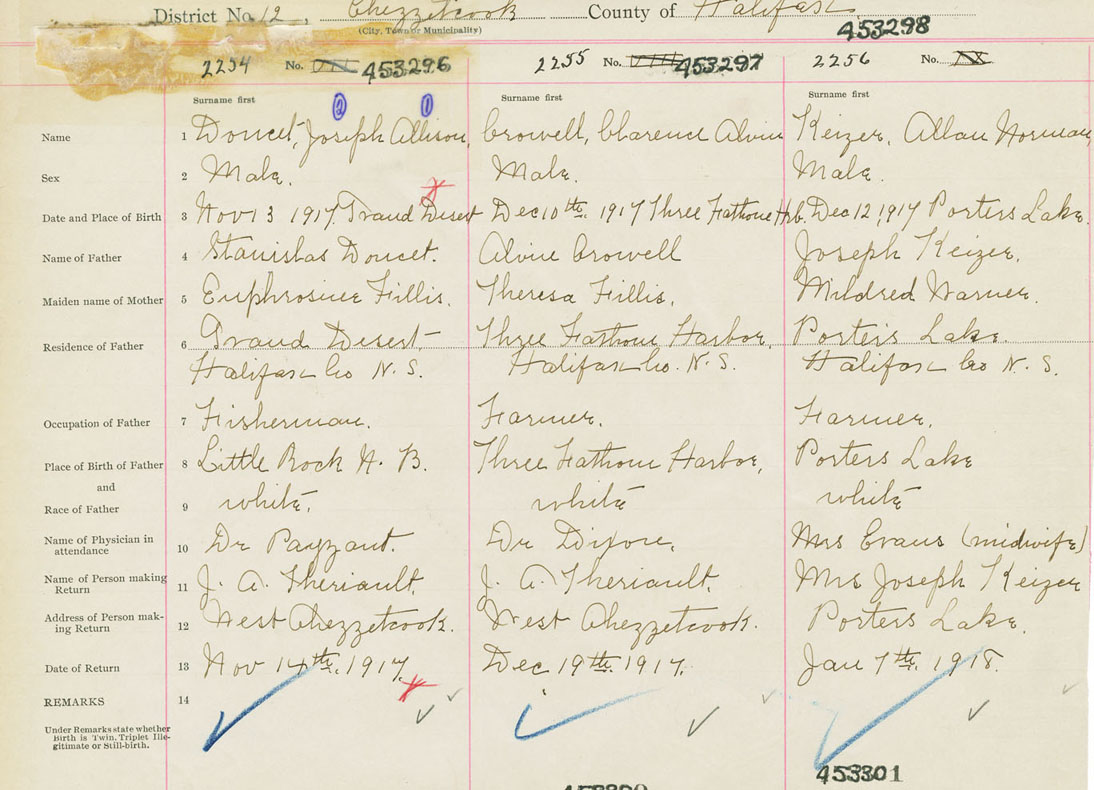 District No. 12, Chezzetcook County of Halifax
(City, Town or Municipality)
453298
2254 No. VII 453296 2255 No. VIII 453297 2256 No. IX
Surname first Surname first Surname first
2 1
Name 1 Doucet, Joseph Allison, Crowell, Clarence Alvin Keizer, Allan Norman,
Sex 2 Male. Male. Male.
Date and Place of Birth 3 Nov 13 1917, Grand Desert Dec 10th. 1917 Three Fathom Hrb. Dec 12, 1917 Porters Lake.
Name of Father 4 Stanislas Doucet. Alvin Crowell Joseph Keizer.
Maiden name of Mother 5 Euphrosine Fillis. Theresa Fillis. Mildred Warner.
Residence of Father 6 Grand Desert Three Fathom Harbor, Porters Lake.
Halifax Co N. S. Halifax Co. N. S. Halifax Co N. S.
Occupation of Father 7 Fisherman. Farmer. Farmer.
Place of Birth of Father 8 Little Rock N. B. Three Fathom Harbor, Porters Lake
and
Race of Father 9 white. white white
Name of Physician in
attendance 10 Dr Payzant. Dr Mrs Evans (midwife)
Name of Person making
Return 11 J. A. Theriault. J. A. Theriault. Mrs Joseph Keizer
Address of Person mak-
ing Return 12 West Chezzetcook. West Chezzetcook. Porters Lake.
Date of Return 13 Nov 14th. 1917. Dec 19th. 1917. Jan 7th. 1918.
REMARKS 14
Under Remarks state whether
Birth is Twin, Triplet Ille-
gitimate or Still-birth.
453301